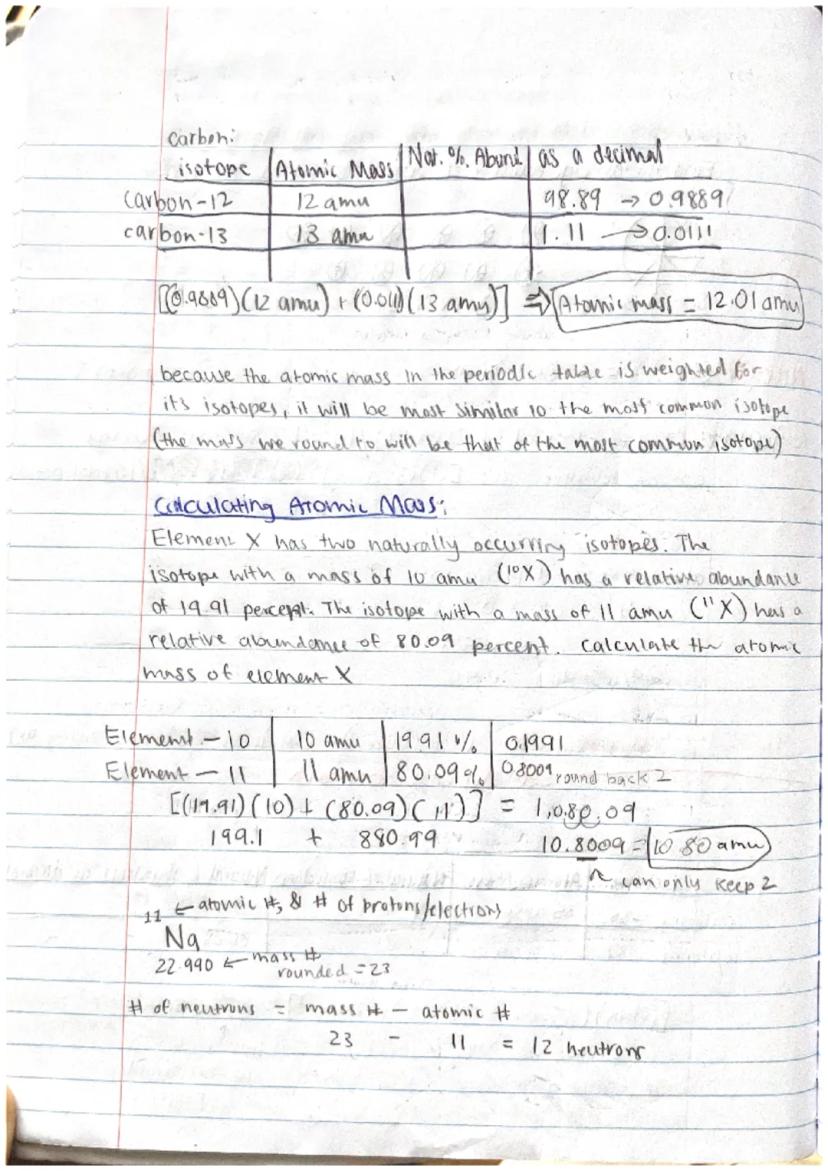 carbon:
isotope | Atomic Mass | Nat. % Abund | as a decimal
carbon-12 | 12 amu | | 98.89 → 0.9889
carbon-13 | 13 amu | | 1.11 → 0.0111
[(0.9889)(12 amu) + (0.011)(13 amu)] ⇒ Atomic mass = 12.01 amu
because the atomic mass in the periodic table is weighted for
its isotopes, it will be most similar to the most common isotope
(the mass we round to will be that of the most common isotope)
Calculating Atomic Mass:
Element X has two naturally occurring isotopes. The
isotope with a mass of 10 amu (¹⁰X) has a relative abundance
of 19.91 percent. The isotope with a mass of 11 amu (¹¹X) has a
relative abundance of 80.09 percent. Calculate the atomic
mass of element X
Element - 10 | 10 amu | 19.91 % | 0.1991
Element - 11 | 11 amu | 80.09 % | 0.8009 round back 2
[(19.91)(10) + (80.09)(11)] = 1,080.09
199.1 + 880.99 10.8009 = 10.80 amu
can only keep 2
11 ← atomic #, & # of protons/electrons
Na
22.990 ← mass #
rounded = 23
# of neutrons = mass # - atomic #
23 - 11 = 12 neutrons